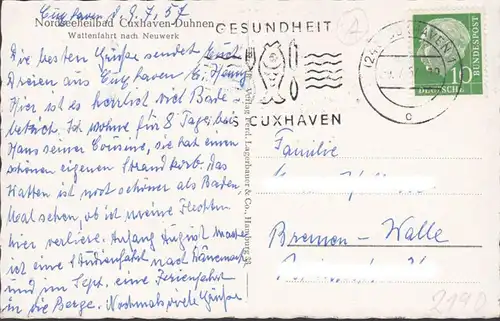 Nordseeheilbad Cuxhaven-Duhnen
Wattenfahrt nach Neuwerk
Cuxhaven d. 9.7.57
Die besten Grüße sendet Euch
Dreien aus Cuxhaven
Hier ist es herrlich viel Bade-
betrieb. Ich wohne für 8 Tage bei
Hans seiner Cousine, sie hat einen
schönen eigenen Strandkorb. Das
Watten ist noch schöner als Baden
Mal sehen, ob ich meine Flechten
hier verliere. Anfang August
ist eine Studienfahrt nach Dänemark
und im Sept. eine Ferienfahrt
in die Berge. Nochmals viele Grüße
Verlag Ferd. Lagerbauer & Co. Hamburg
GESUNDHEIT
CUXHAVEN
CUXHAVEN 1
c
10
DEUTSCHE
BUNDESPOST
Familie
Bremen-Walle
2190